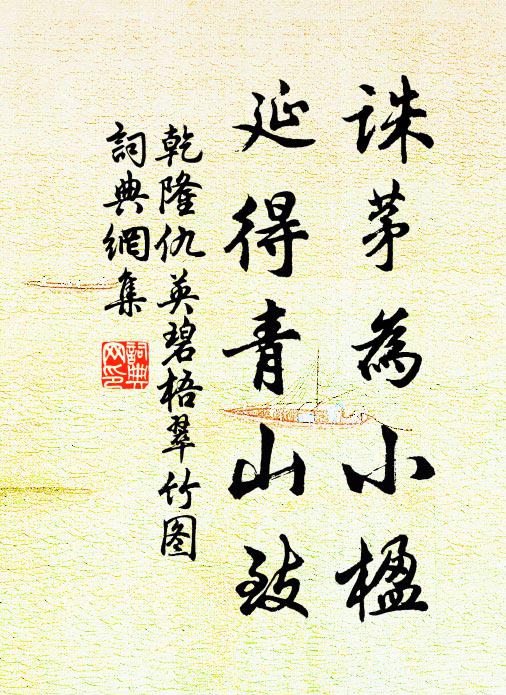 誅茅為小楹
延得青山致
乾隆仇英碧梧翠竹图
詞典網集
詞典网印